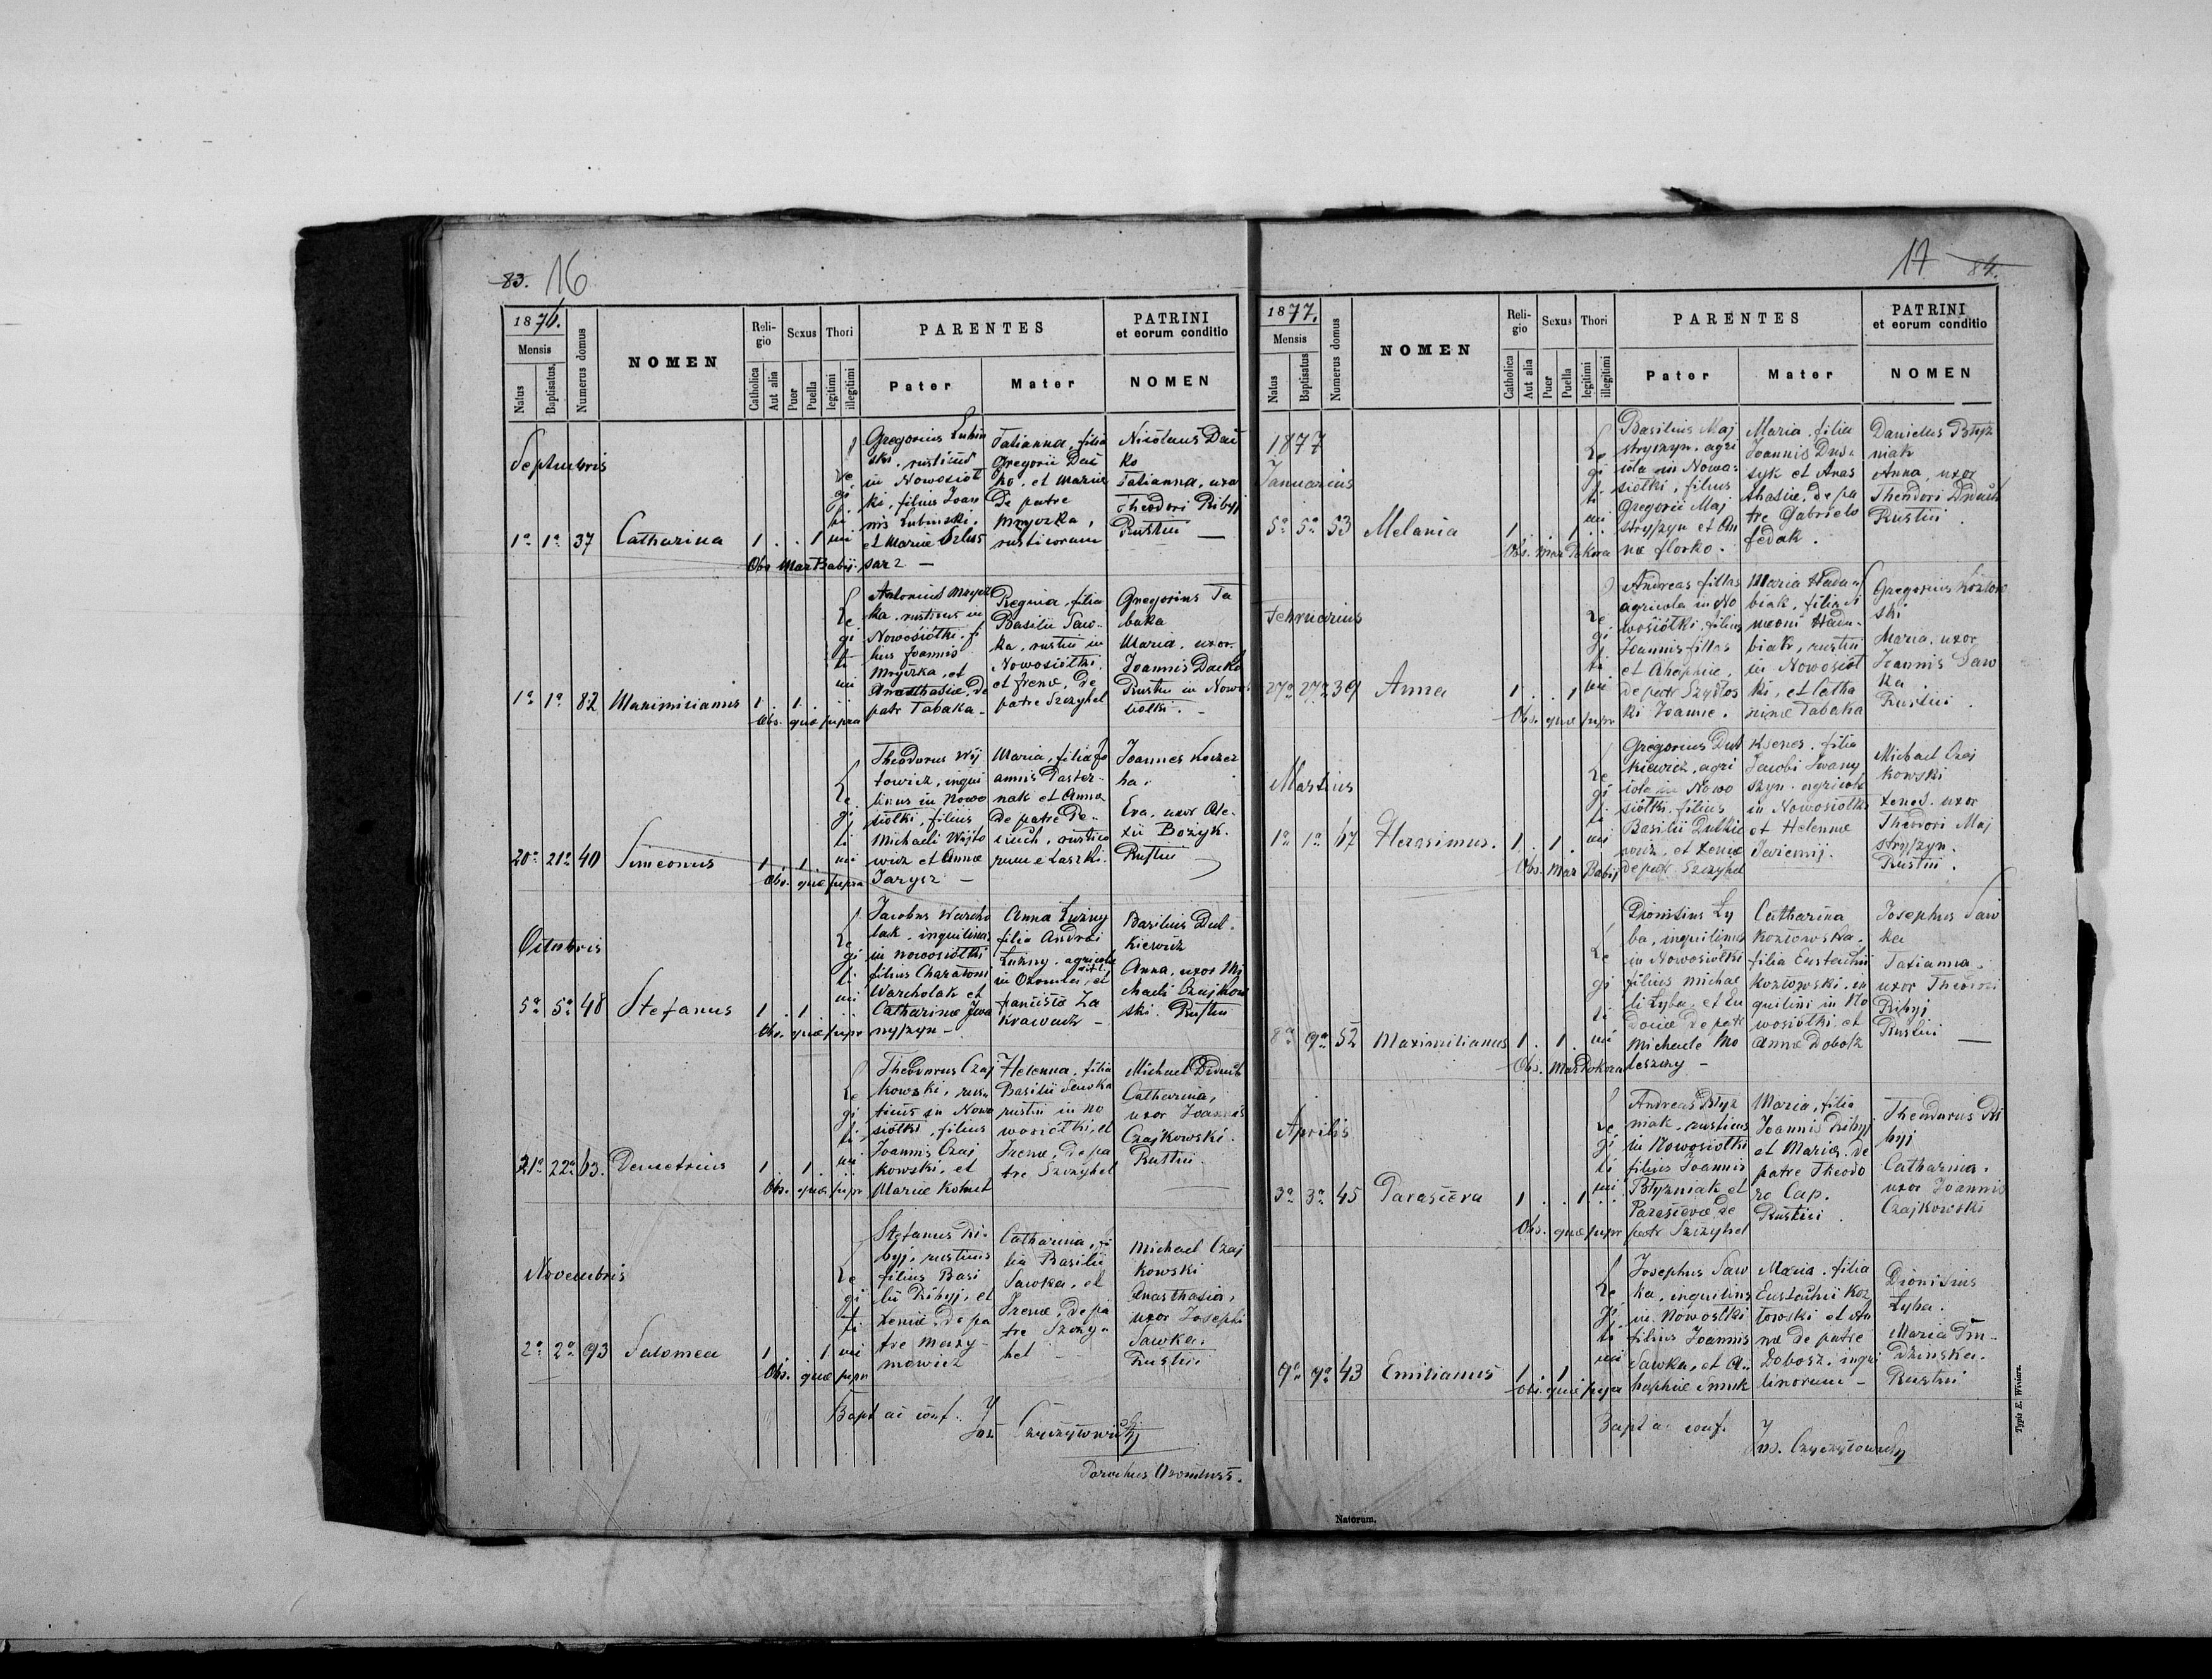 83. 16
1876.
Mensis
Natus
Baptisatus,
Numerus domus
NOMEN
Reli-
gio
Catholica
Aut alia
Sexus
Puer
Puella
Thori
legitimi
illegitimi
PARENTES
Pater
Mater
PATRINI
et eorum conditio
NOMEN
Septembris
1a 1a 37 Catharina 1 . . 1
Le
gi
ti
mi
Obs. Mar Babij.
Gregorius Lubin
ski, rusticus
in Nowosiół
ki, filius Joan
nis Lubinski,
et Mariæ
Tatianna, filia
Gregorii Dać
ko, et Mariæ
de patre
Mryczka,
rusticorum
Nicolaus Dać
ko
Tatianna, uxor
Theodori Ribyj
Rustici
1a 1a 82 Maximilianus 1 . 1 .
Le
gi
ti
mi
Obs. quæ supra
Antonius Mrycz
ka, rusticus in
Nowosiółki, fi
lius Joannis
Mryczka, et
Anasthasiæ, de
patr Tabaka
Regina, filia
Basilii Saw-
ka, rustici in
Nowosiółki
et Irenæ, de
patre Szczyhel
Gregorius Ta
baka
Maria, uxor
Joannis Dacko
Rustici in Nowo
siolki.
20a 21a 40 Simeonus 1 . 1 .
Le
gi
ti
mi
Obs. quæ supra
Theodorus Wij
towicz, inqui
linus in Nowo
siolki, filius
Michaeli Wojto
wicz et Annæ
Jarycz
Maria, filia Jo
annis Paster-
nak et Anna
de patre De-
, rustico
rum e Laszki.
Joannes Korzer
ha.
Eva, uxor Ale-
xii Bozyk.
Rustici
Octobris
5a 5a 48 Stefanus 1 . 1 .
Le
gi
ti
mi
Obs. quæ supr
Jacobus Warcho
lak, inquilinus
in Nowosiółki
filius Charatoni
Warcholak et
Catharinæ Iwa
nyszyn
Anna Luzny
filia Andrei
Luzny, agricola
in Ozomla, et
Za
Krawacz
Basilius Dut-
kiewicz
Anna, uxor Mi
chaeli Czajkow
ski. Rustici
21a 22a 63. Demetrius 1 . 1 .
Le
gi
ti
mi
Obs. quæ supr
Theodorus Czaj
kowski, rus-
ticus in Nowo
siółki, filius
Joannis Czaj
kowski, et
Mariæ Kohut
Helenna, filia
Basilii Sawka
rustici in No
wosiółki, et
Irenæ, de pa
tre Szczyhel
Michael Dduch
Catharina,
uxor Joannis
Czajkowski.
Rustici
Novembris
2a 2a 93 Salomea 1 . . 1
Le
gi
ti
mi
Obs. quæ supra
Stefanus Ri-
byj, rusticus
filius Basi
lii Ribyj, et
Xeniæ, de pa
tre Maxy-
mowicz
Catharina, fi
lia Basilii
Sawka, et
Irenæ, de pa
tre Szczy-
hel
Michael Czaj
kowski
Anasthasia,
uxor Josephi
Sawka.
Rustici
Bapt ac conf.
Parochus
17 84.
1877.
Mensis
Natus
Baptisatus
Numerus domus
NOMEN
Reli-
gio
Catholica
Aut alia
Sexus
Puer
Puella
Thori
legitimi
illegitimi
PARENTES
Pater
Mater
PATRINI
et eorum conditio
NOMEN
1877
Januarius
5a 5a 53 Melania 1 . . 1
Le
gi
ti
mi
Obs. Mar
Basilius Maj
stryszyn, agri
cola in Nowo-
siółki, filius
Gregorii Maj
stryszyn et An
næ Horko.
Maria, filia
Joannis Dus-
syk et Anas
thasiæ, de pa
tre Gabrielo
Fedak.
Danielus Błyz
niak
Anna, uxor
Theodori Dduch
Rustici
Februarius
27a 27a 39 Anna 1 . . 1
Le
gi
ti
mi
Obs. quæ supr
Andreas Fillas
agricola in No
wosiółki, filius
Joannis Fillas
et Ahaphiæ,
de patr Szydlos
ki Joanne.
Maria Hadu-
biak, filia Si
meoni Hadu-
biak, rustici
in Nowosiół
ki, et Catha
rinæ Tabaka
Gregorius Kozlow
ski
Maria, uxor
Joannis Saw
ka
Rustici
Martius
1a 1a 67 Herasimus. 1 . 1 .
Le
gi
ti
mi
Obs. Mar Babij
Gregorius Dut
kiewicz, agri
cola in Nowo
siółki, filius
Basilii Dutkie
wicz, et Xeniæ
de patr Szczyhel
Ksenes, filia
Jacobi Iwany
szyn, agricola
in Nowosiolki
et Helennæ
Jaremij.
Michael Czaj
kowski
Xenes. uxor
Theodori Maj
stryszyn.
Rustici.
8a 9a 52 Maximilianus 1 . 1 .
Le
gi
ti
mi
Obs. Mar
Dionisius Ly
ba, inquilinus
in Nowosiółki
filius Michae
li Lyba, et Eu
dociæ de patr
Michaele Mo
leszczy
Catharina
Kozlowska,
filia Eustachii
Kozlowski, in
quilini in No
wosiółki, et
Annæ Dobosz
Josephus Saw
ka
Tatianna,
uxor Theodori
Ribyj
Rustici
Aprilis
3a 3a 45 Parasceva 1 . . 1
Le
gi
ti
mi
Obs. quæ supr
Andreas Błyz
niak, rusticus
in Nowosiółki
filius Joannis
Błyzniak et
Parascevæ de
patr Szczyhel
Maria, filia
Joannis Ribyj
et Maria, de
patre Theodo
ro Cap.
Rustici
Theodorus Ri
byj
Catharina,
uxor Joannis
Czajkowski
9a 9a 43 Emilianus 1 . 1 .
Le
gi
ti
mi
Obs. quæ supra
Josephus Saw
ka, inquilinus
in Nowosiółki
filius Joannis
Sawka, et A-
haphiæ Smuk
Maria, filia
Eustachii Koz
lowski et An
næ de patre
Dobosz, inqui
linorum
Dionisius
Lyba.
Maria Dm-
dzinska.
Rustici
Bapt ac conf.
Typis E. Winiarz.
Natorum.